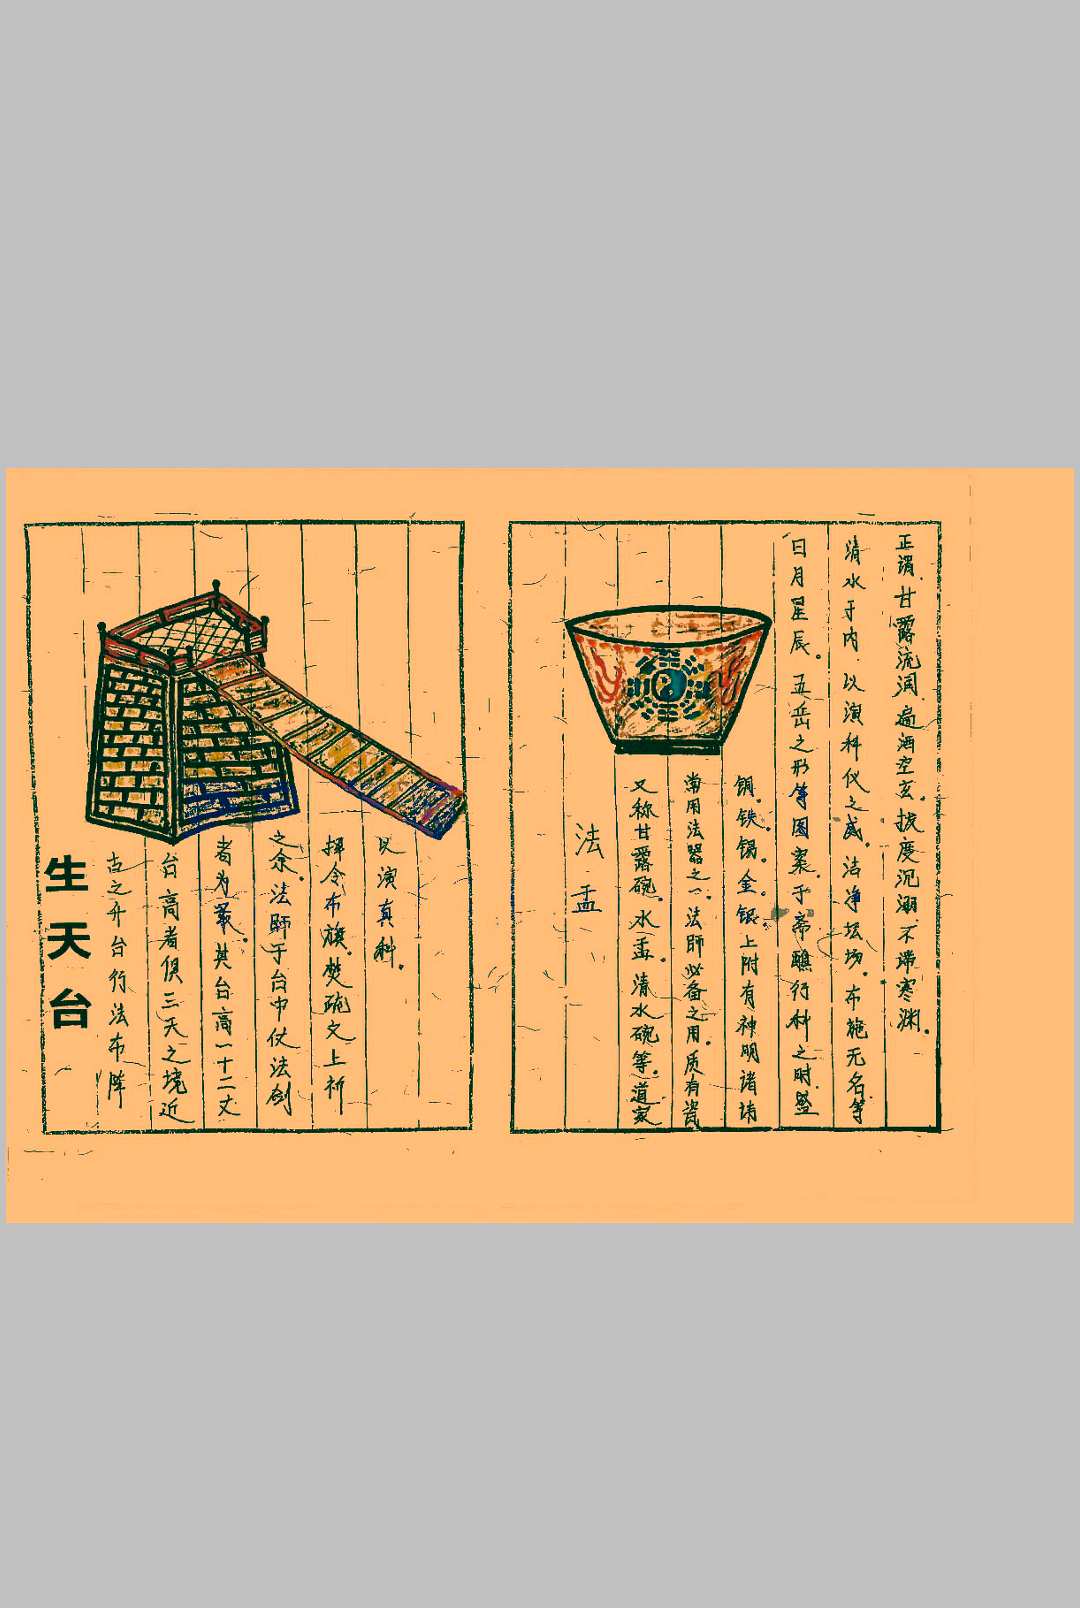 生天台
古之升台行法布阵
台高者俱三天之境近
者为叢.其台高一十二丈
之余.法師于台中仗法剑
挥令布旗.焚疏文上祈
以演真科.
法盂
又称甘露碗.水盂.清水碗等.道家
常用法器之一.法師必备之用.质有瓷
铜.铁.锡.金.银.上附有神明诸讳
日月星辰.五岳之形等图案.于斋醮行科之时.盛
清水于内.以演科仪之威.洁净坛场.布施无名等
正谓.甘露流润.遍洒空玄.拔度沉溺.不滞寒渊.